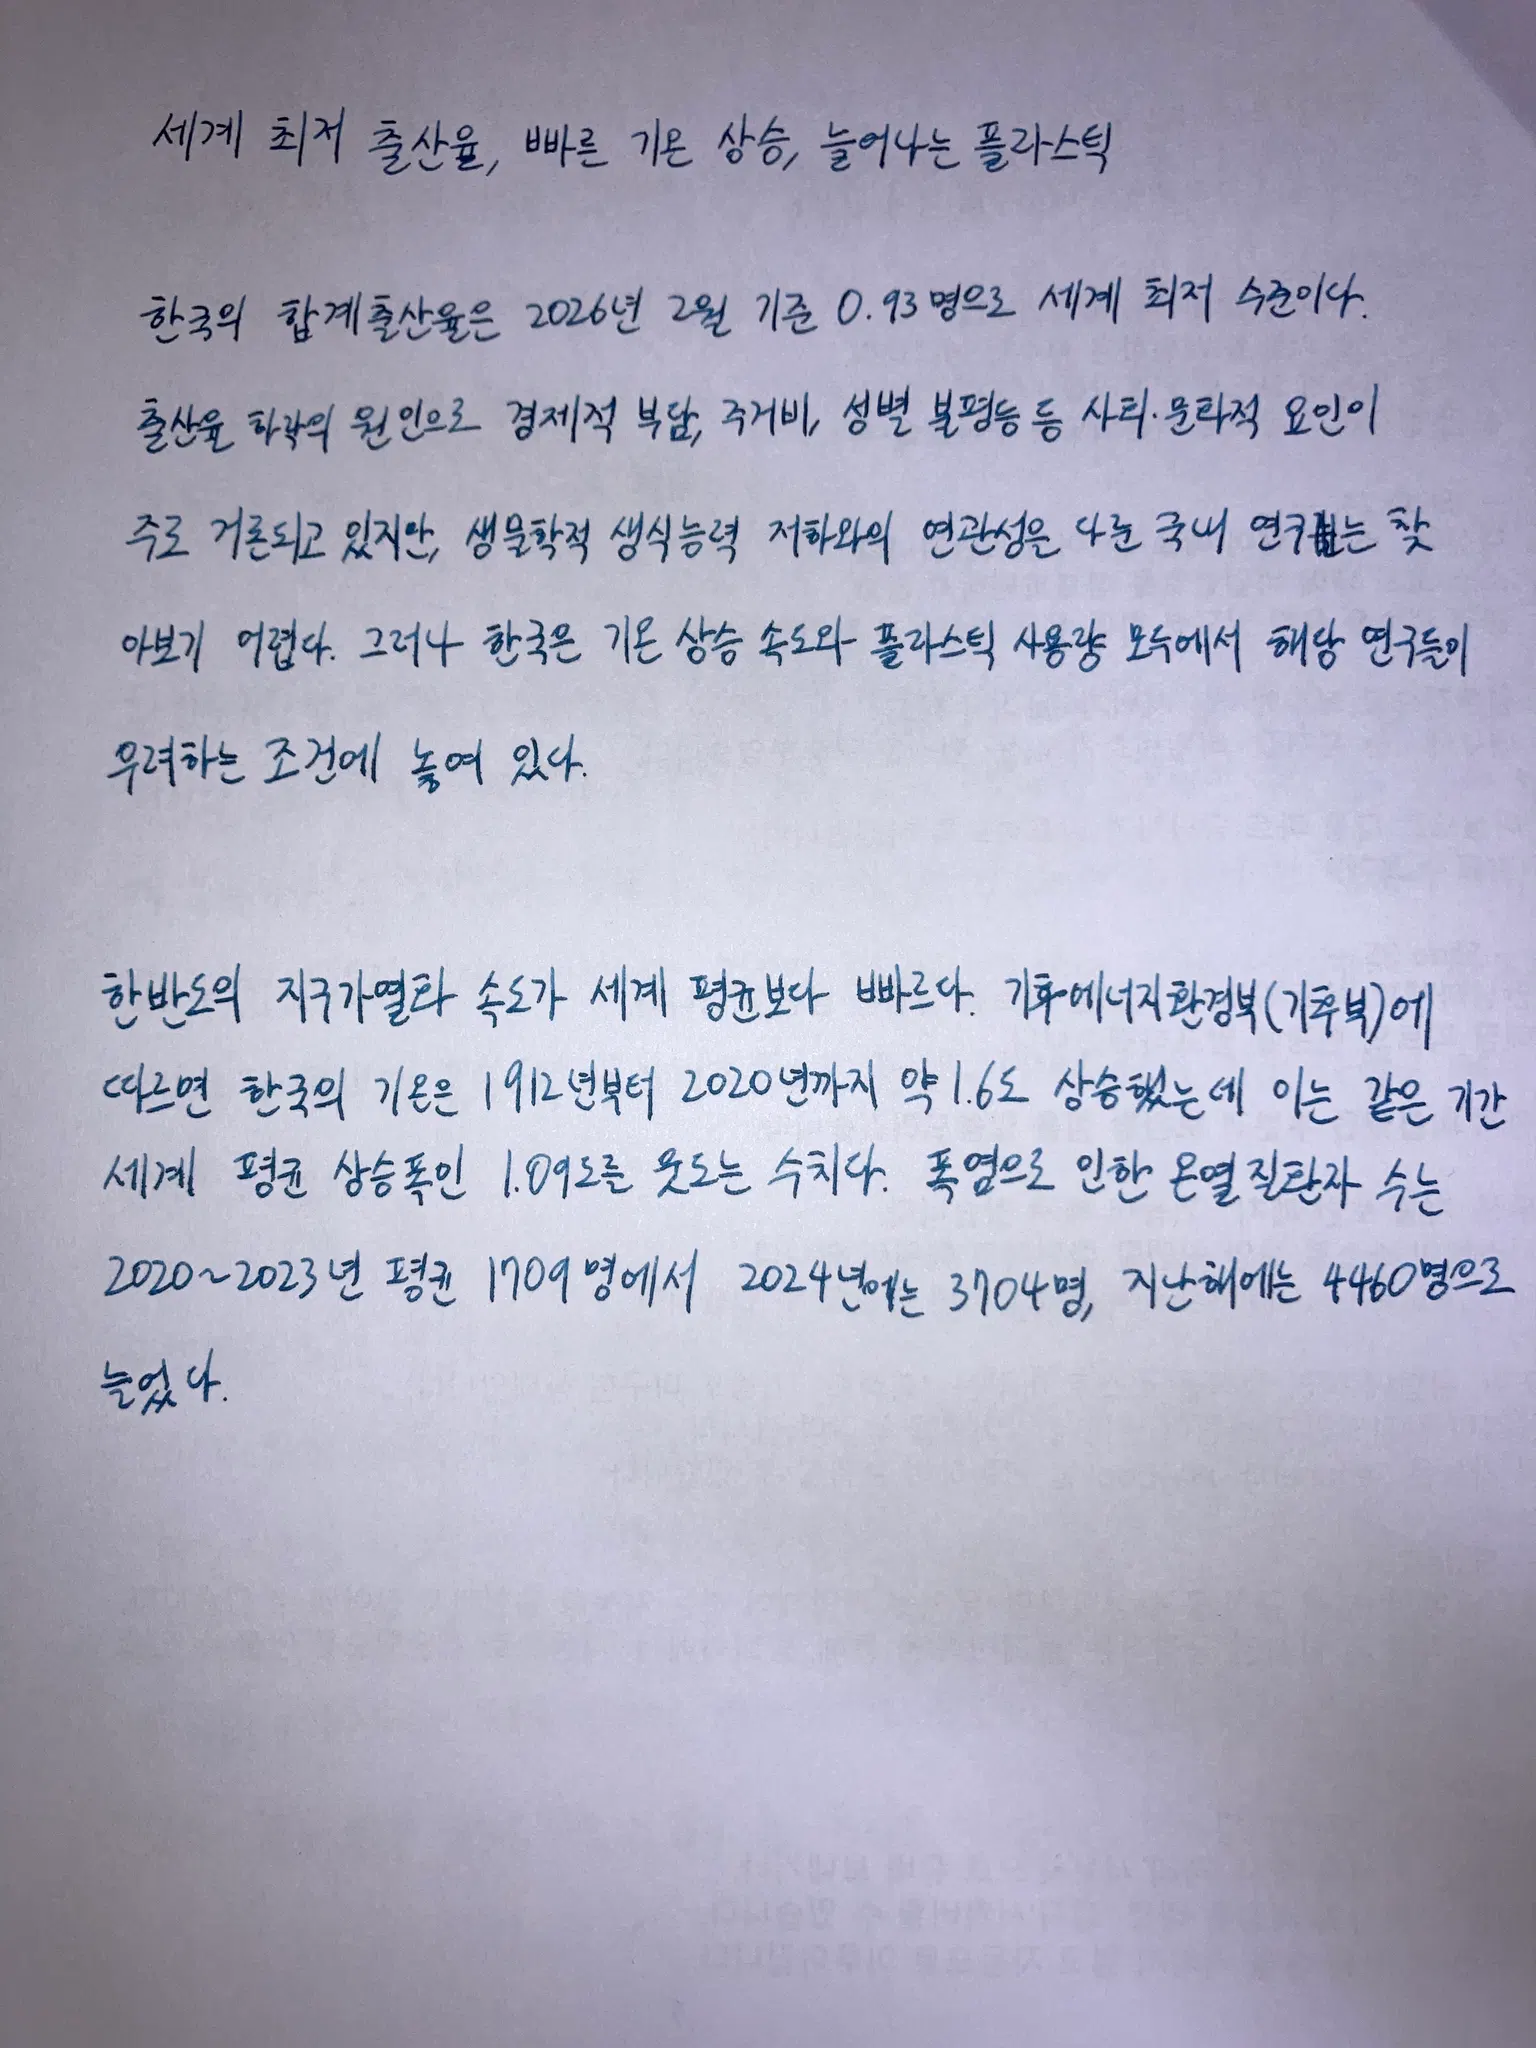 세계 최저 출산율, 빠른 기온 상승, 늘어나는 플라스틱
한국의 합계출산율은 2026년 2월 기준 0.93명으로 세계 최저 수준이다.
출산율 하락의 원인으로 경제적 부담, 주거비, 성별 불평등 등 사회·문화적 요인이
주로 거론되고 있지만, 생물학적 생식능력 저하와의 연관성은 다룬 국내 연구는 찾
아보기 어렵다. 그러나 한국은 기온 상승 속도와 플라스틱 사용량 모두에서 해당 연구들이
우려하는 조건에 놓여 있다.
한반도의 지구가열화 속도가 세계 평균보다 빠르다. 기후에너지환경부(기후부)에
따르면 한국의 기온은 1912년부터 2020년까지 약 1.6도 상승했는데 이는 같은 기간
세계 평균 상승폭인 1.09도를 웃도는 수치다. 폭염으로 인한 온열질환자 수는
2020~2023년 평균 1709명에서 2024년에는 3704명, 지난해에는 4460명으로
늘었다.